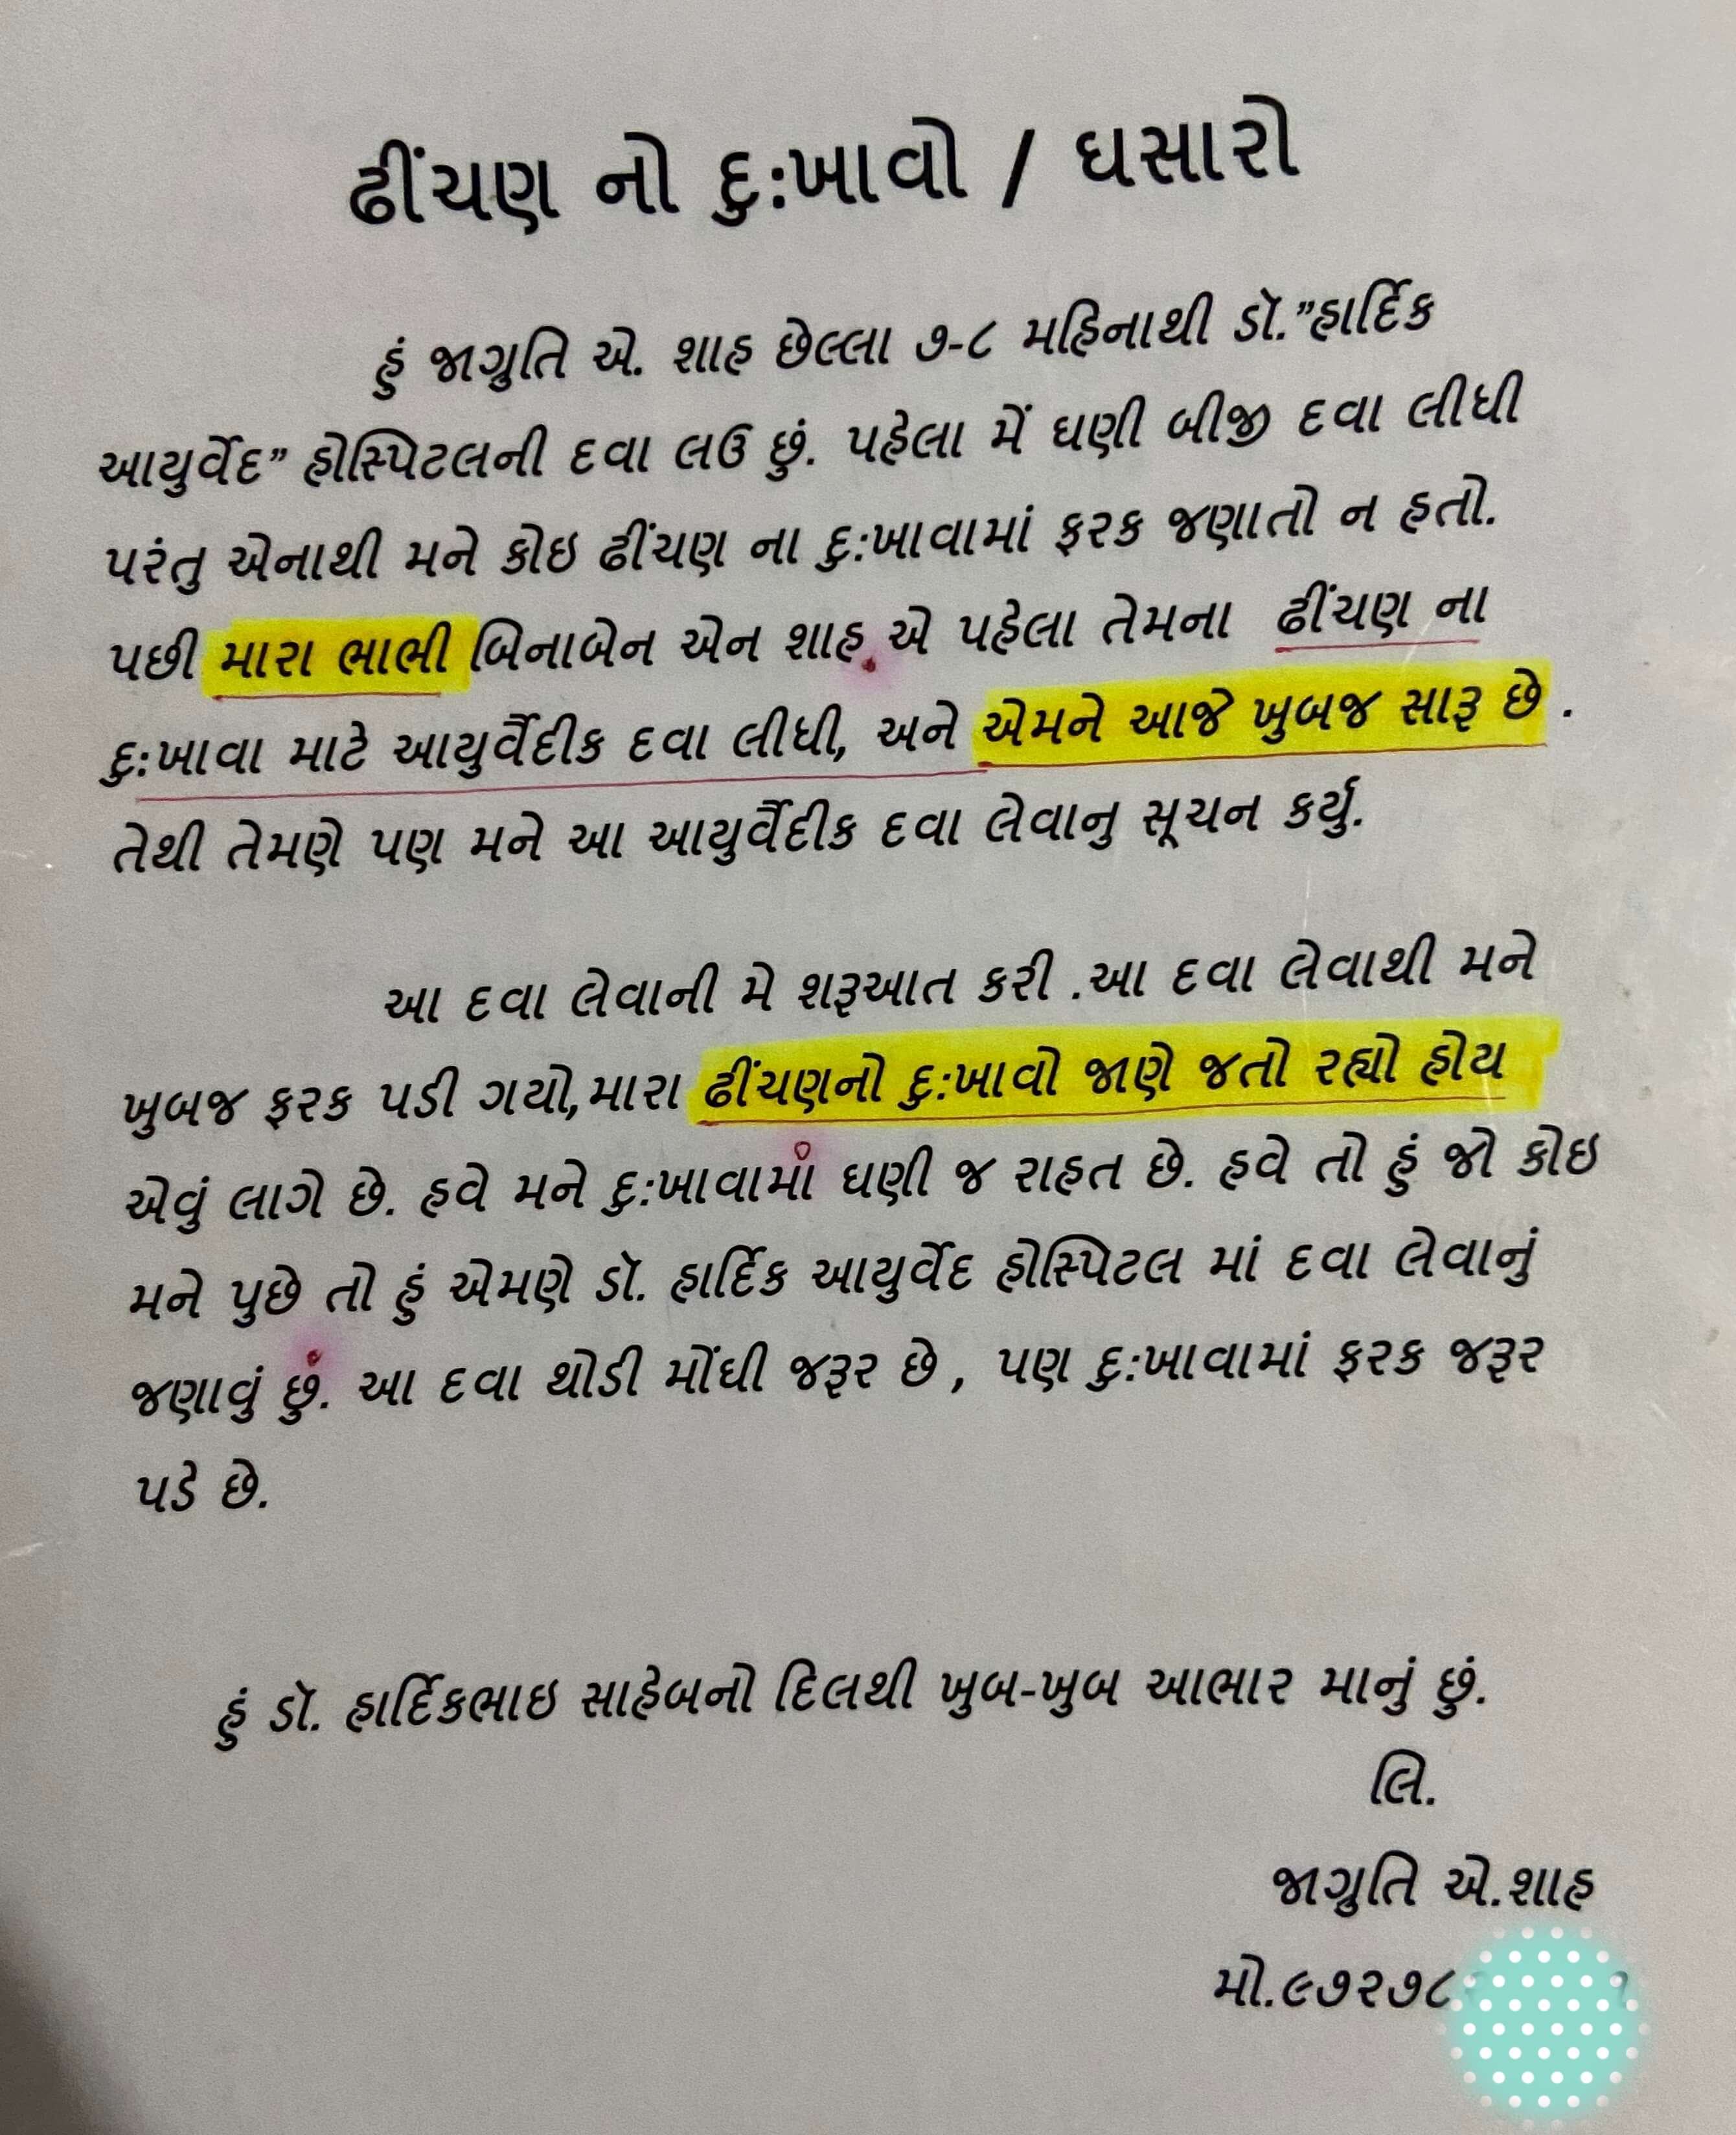 ઢીંચણ નો દુ:ખાવો / ઘસારો
હું જાગ્રુતિ એ. શાહ છેલ્લા ૭-૮ મહિનાથી ડૉ."હાર્દિક
આયુર્વેદ” હોસ્પિટલની દવા લઉ છું. પહેલા મેં ઘણી બીજી દવા લીધી
પરંતુ એનાથી મને કોઇ ઢીંચણ ના દુ:ખાવામાં ફરક જણાતો ન હતો.
પછી મારા ભાભી બિનાબેન એન શાહ એ પહેલા તેમના ઢીંચણ ના
દુ:ખાવા માટે આયુર્વૈદીક દવા લીધી, અને એમને આજે ખુબજ સારૂ છે .
તેથી તેમણે પણ મને આ આયુર્વૈદીક દવા લેવાનુ સૂચન કર્યુ.
આ દવા લેવાની મે શરૂઆત કરી .આ દવા લેવાથી મને
ખુબજ ફરક પડી ગયો,મારા ઢીંચણનો દુ:ખાવો જાણે જતો રહ્યો હોય
એવું લાગે છે. હવે મને દુ:ખાવામાં ઘણી જ રાહત છે. હવે તો હું જો કોઇ
મને પુછે તો હું એમણે ડૉ. હાર્દિક આયુર્વેદ હોસ્પિટલ માં દવા લેવાનું
જણાવું છું. આ દવા થોડી મોંઘી જરૂર છે , પણ દુ:ખાવામાં ફરક જરૂર
પડે છે.
હું ડૉ. હાર્દિકભાઇ સાહેબનો દિલથી ખુબ-ખુબ આભાર માનું છું.
લિ.
જાગ્રુતિ એ.શાહ
મો.૯૭૨૭૮